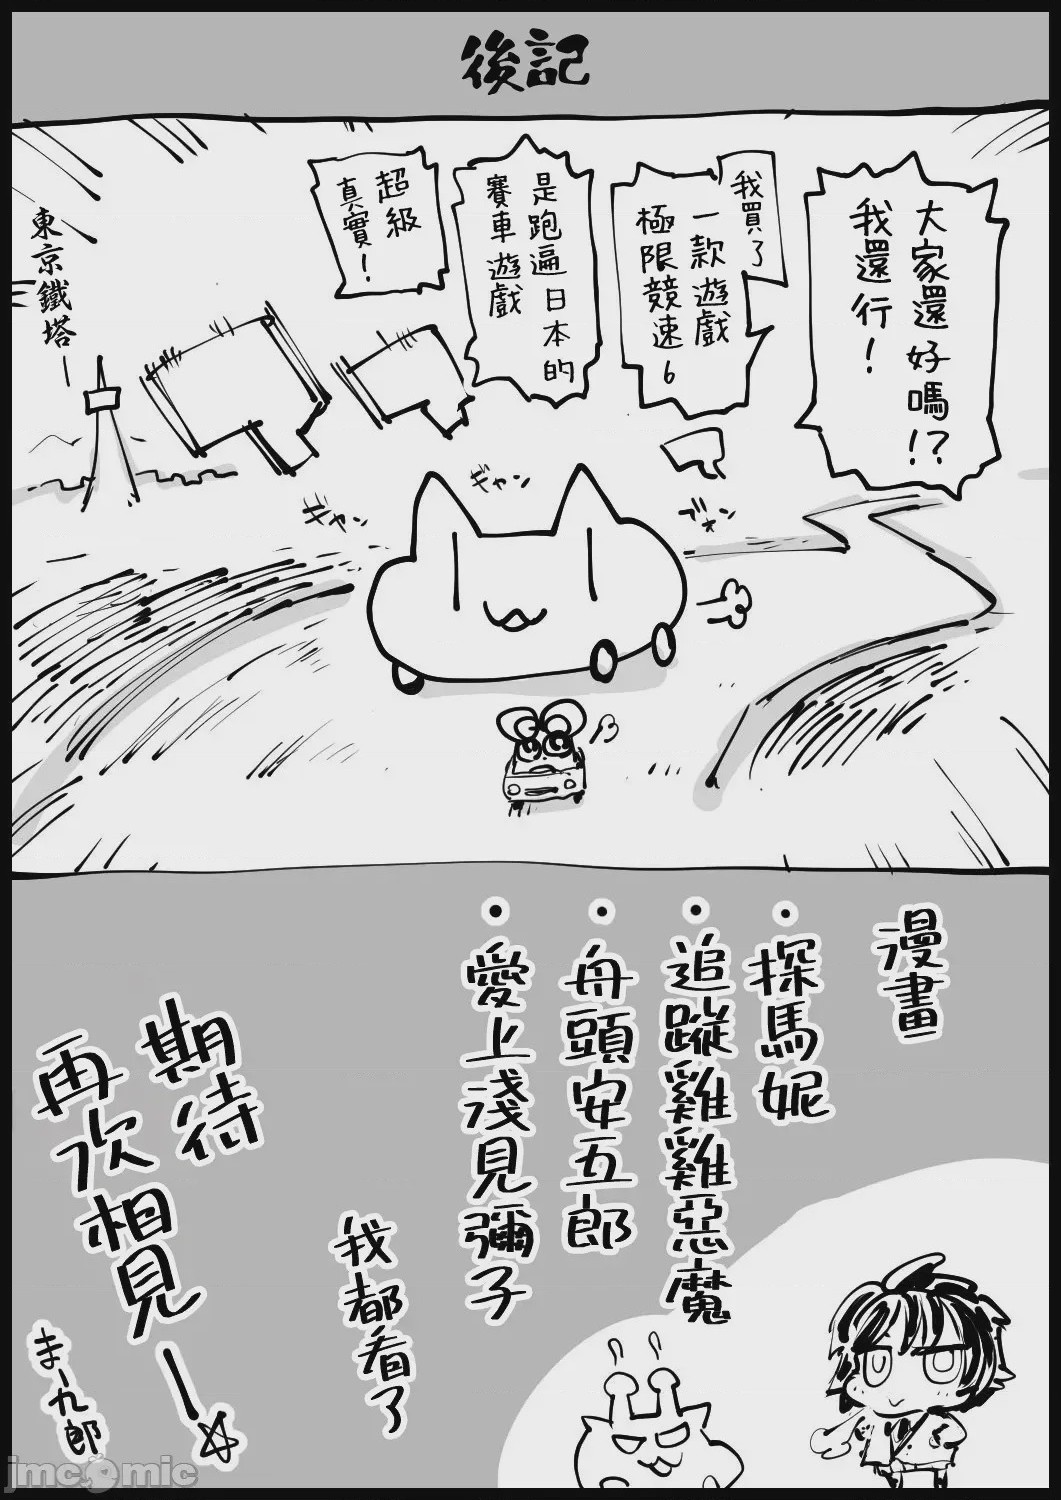 後記
大家還好嗎!?
我還行！
我買了
一款遊戲
極限競速6
是跑遍日本的
賽車遊戲
超級
真實！
東京鐵塔ー
ギャン
ギャン
ブォン
漫畫
・探馬妮
・追蹤雞雞惡魔
・舟頭安五郎
・愛上淺見彌子
我都看了
期待
再次相見ー☆
まー九郎
jmcomic